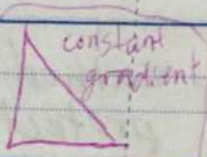 constant
gradient